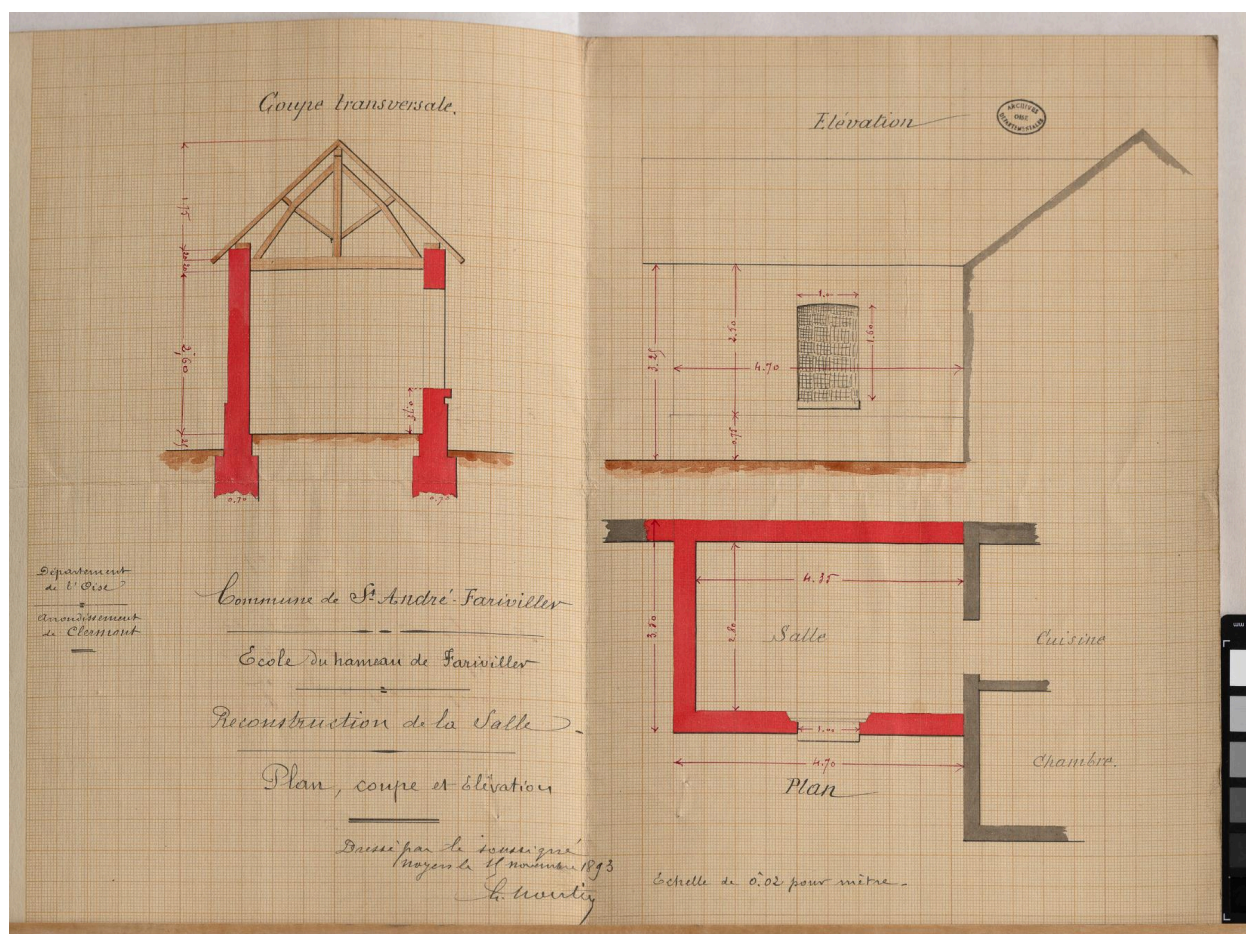 Coupe transversale.
1.75
20
20
2,60
0.75
25
0.70
0.70
Département
de l'Oise
Arrondissement
de Clermont
Commune de St André-Fariviller
Ecole du hameau de Fariviller
Reconstruction de la Salle.
Plan, coupe et Elévation
Dressé par le soussigné
Noyers le 15 novembre 1893
Elévation
ARCHIVES
OISE
DÉPARTEMENTALES
1.00
1.60
2.50
3.25
4.70
0.75
4.35
3.50
2.80
Salle
Cuisine
1.00
Chambre.
4.70
Plan
Echelle de 0m02 pour mètre.